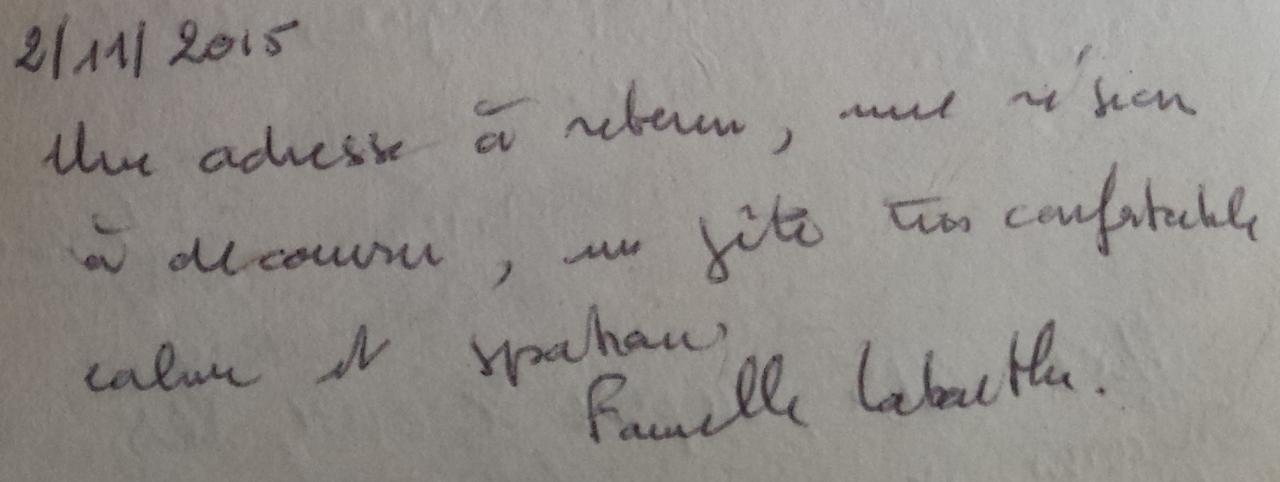 2/11/2015
Une adresse à retenir, une région
à découvrir, un gîte très confortable
calme et spatieux
Famille